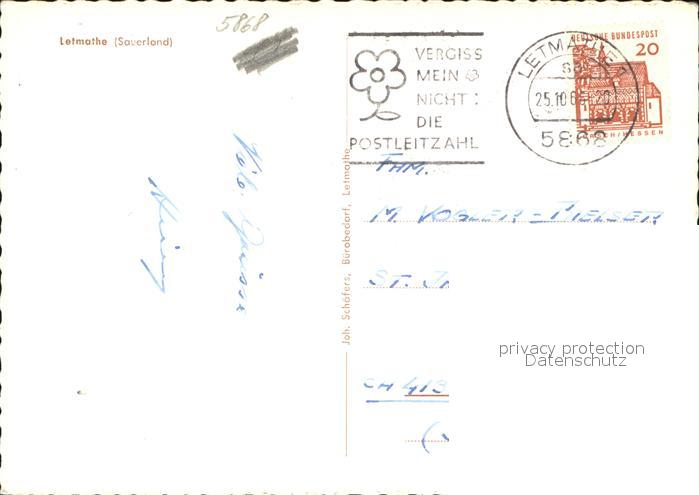 5868
Letmathe (Sauerland)
VERGISS
MEIN
NICHT:
DIE
POSTLEITZAHL
LETMATHE
25.10.65
5868
DEUTSCHE BUNDESPOST
20
/HESSEN
Joh. Schäfers, Bürobedarf, Letmathe
FHM.
M. VOGLER-
ST. J
CH 413
privacy protection
Datenschutz